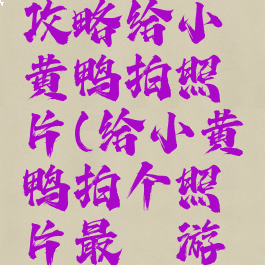 攻略给小
黄鸭拍照
片(给小黄
鸭拍个照
片最 游